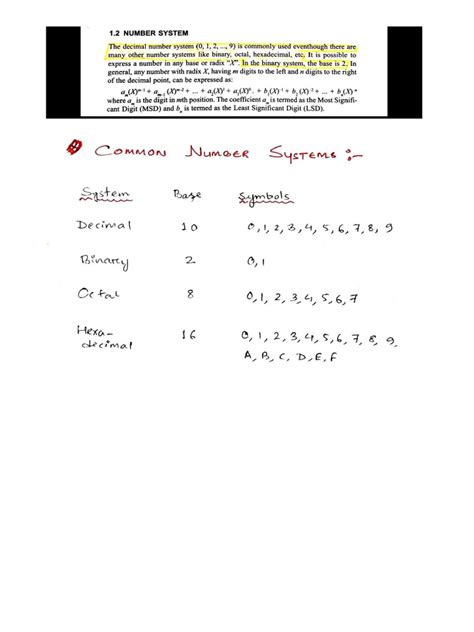 1.2 NUMBER SYSTEM
The decimal number system (0, 1, 2, ..., 9) is commonly used eventhough there are
many other number systems like binary, octal, hexadecimal, etc. It is possible to
express a number in any base or radix "X". In the binary system, the base is 2. In
general, any number with radix X, having m digits to the left and n digits to the right
of the decimal point, can be expressed as:
aₘ(X)ᵐ⁻¹ + aₘ₋₁(X)ᵐ⁻² + ... + a₂(X)¹ + a₁(X)⁰ . + b₁(X)⁻¹ + b₂(X)⁻² + ... + bₙ(X)⁻ⁿ
where aₘ is the digit in mth position. The coefficient aₘ is termed as the Most Signifi-
cant Digit (MSD) and bₙ is termed as the Least Significant Digit (LSD).
COMMON NUMBER SYSTEMS :-
System Base Symbols
Decimal 10 0, 1, 2, 3, 4, 5, 6, 7, 8, 9
Binary 2 0, 1
Octal 8 0, 1, 2, 3, 4, 5, 6, 7
Hexa- 16 0, 1, 2, 3, 4, 5, 6, 7, 8, 9,
decimal A, B, C, D, E, F